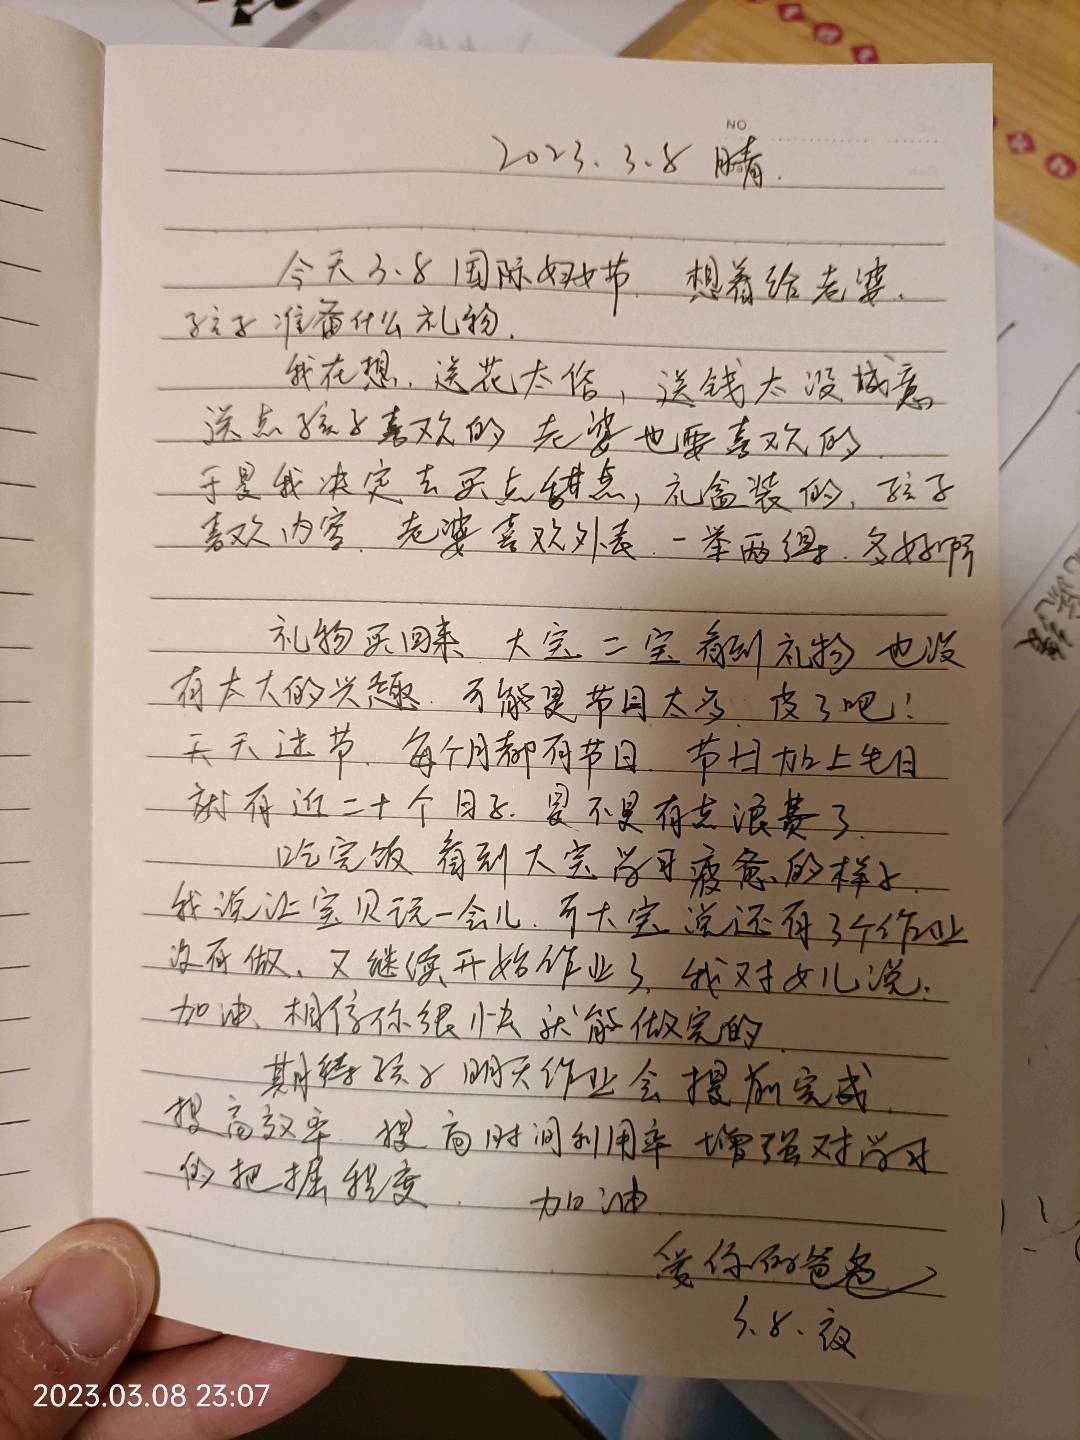 NO
2023.3.8 晴.
今天3.8国际妇女节. 想着给老婆.
孩子准备什么礼物.
我在想.送花太俗,送钱太没诚意
送点孩子喜欢的 老婆也要喜欢的.
于是我决定去买点甜点,礼盒装的.孩子
喜欢内容.老婆喜欢外表.一举两得.多好啊
礼物买回来 大宝二宝看到礼物 也没
有太大的兴趣.可能是节目太多.皮了吧!
天天过节.每个月都有节日.节日加上生日
就有近二十个日子.是不是有点浪费了.
吃完饭 看到大宝学习疲惫的样子.
我说让宝贝玩一会儿.可大宝说还有3个作业
没有做.又继续开始作业了.我对女儿说:
加油.相信你很快就能做完的.
期待孩子明天作业会提前完成.
提高效率 提高时间利用率 增强对学习
的把握程度. 加油.
爱你的爸爸
3.8.夜
2023.03.08 23:07